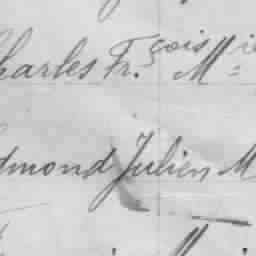 harles Fr.çois M.ie
dmond Julien M